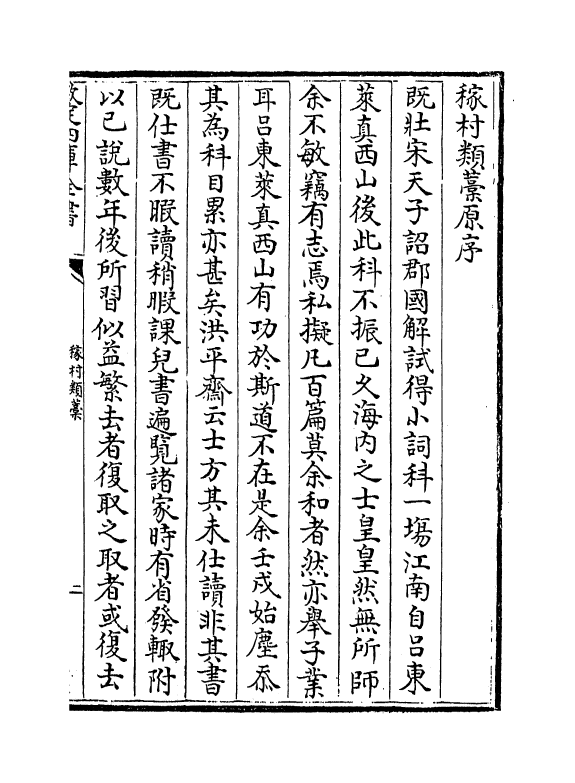 稼村類藁原序
既壯宋天子詔郡國解試得小詞科一場江南自吕東
萊真西山後此科不振已久海内之士皇皇然無所師
余不敏竊有志焉私擬凡百篇莫余和者然亦舉子業
耳吕東萊真西山有功於斯道不在是余壬戌始塵忝
其為科目累亦甚矣洪平齋云士方其未仕讀非其書
既仕書不暇讀稍暇課兒書遍覧諸家時有省發輙附
以已說數年後所習似益繁去者復取之取者或復去
欽定四庫全書
稼村類藁
二